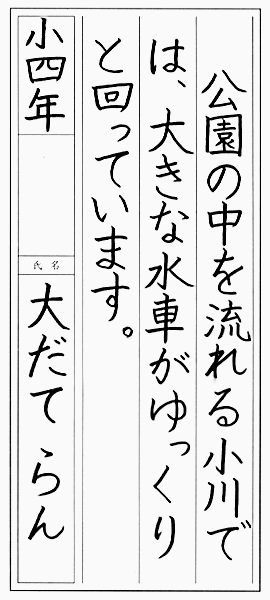 公園の中を流れる小川で
は、大きな水車がゆっくり
と回っています。
小四年
氏名
大だて らん